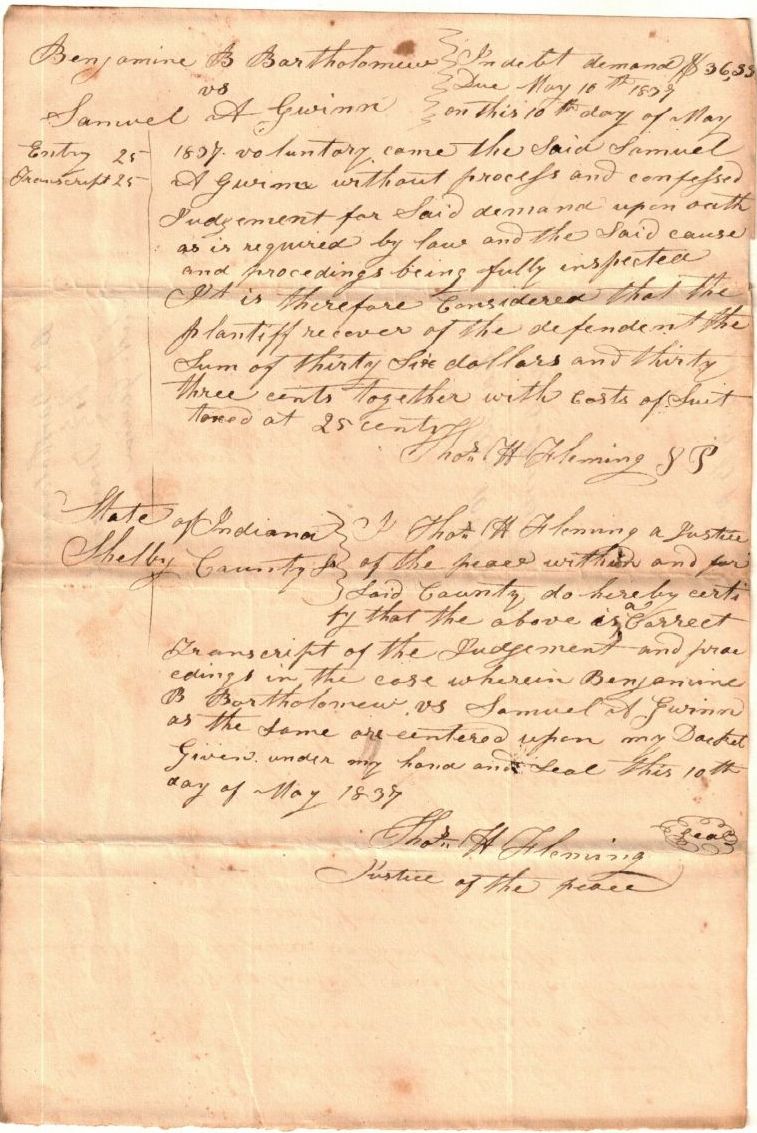 Benjamine B Bartholomew
vs
Samuel A Gwinn
In debt demand $36,33
Due May 10th 1837
on this 10th day of May
Entry 25
Transcript 25
1837. voluntary came the Said Samuel
A Gwinn without process and confessed
Judgement for Said demand upon oath
as is required by law and the Said cause
and procedings being fully inspected
It is therefore Considered that the
plantiff recover of the defendent the
Sum of thirty Six dollars and thirty
three cents together with Costs of Suit
taxed at 25 cents
Thos. H Fleming J P
State of Indiana
Shelby County Ss
I Thos. H Fleming a Justice
of the peace within and for
Said County, do hereby certi
fy that the above is a Correct
Transcript of the Judgement and proce
edings in the case wherein Benjamine
B Bartholomew vs Samuel A Gwinn
as the Same are entered upon my Docket
Given under my hand and Seal this 10th
day of May 1837
Thos. H Fleming
Seal
Justice of the peace